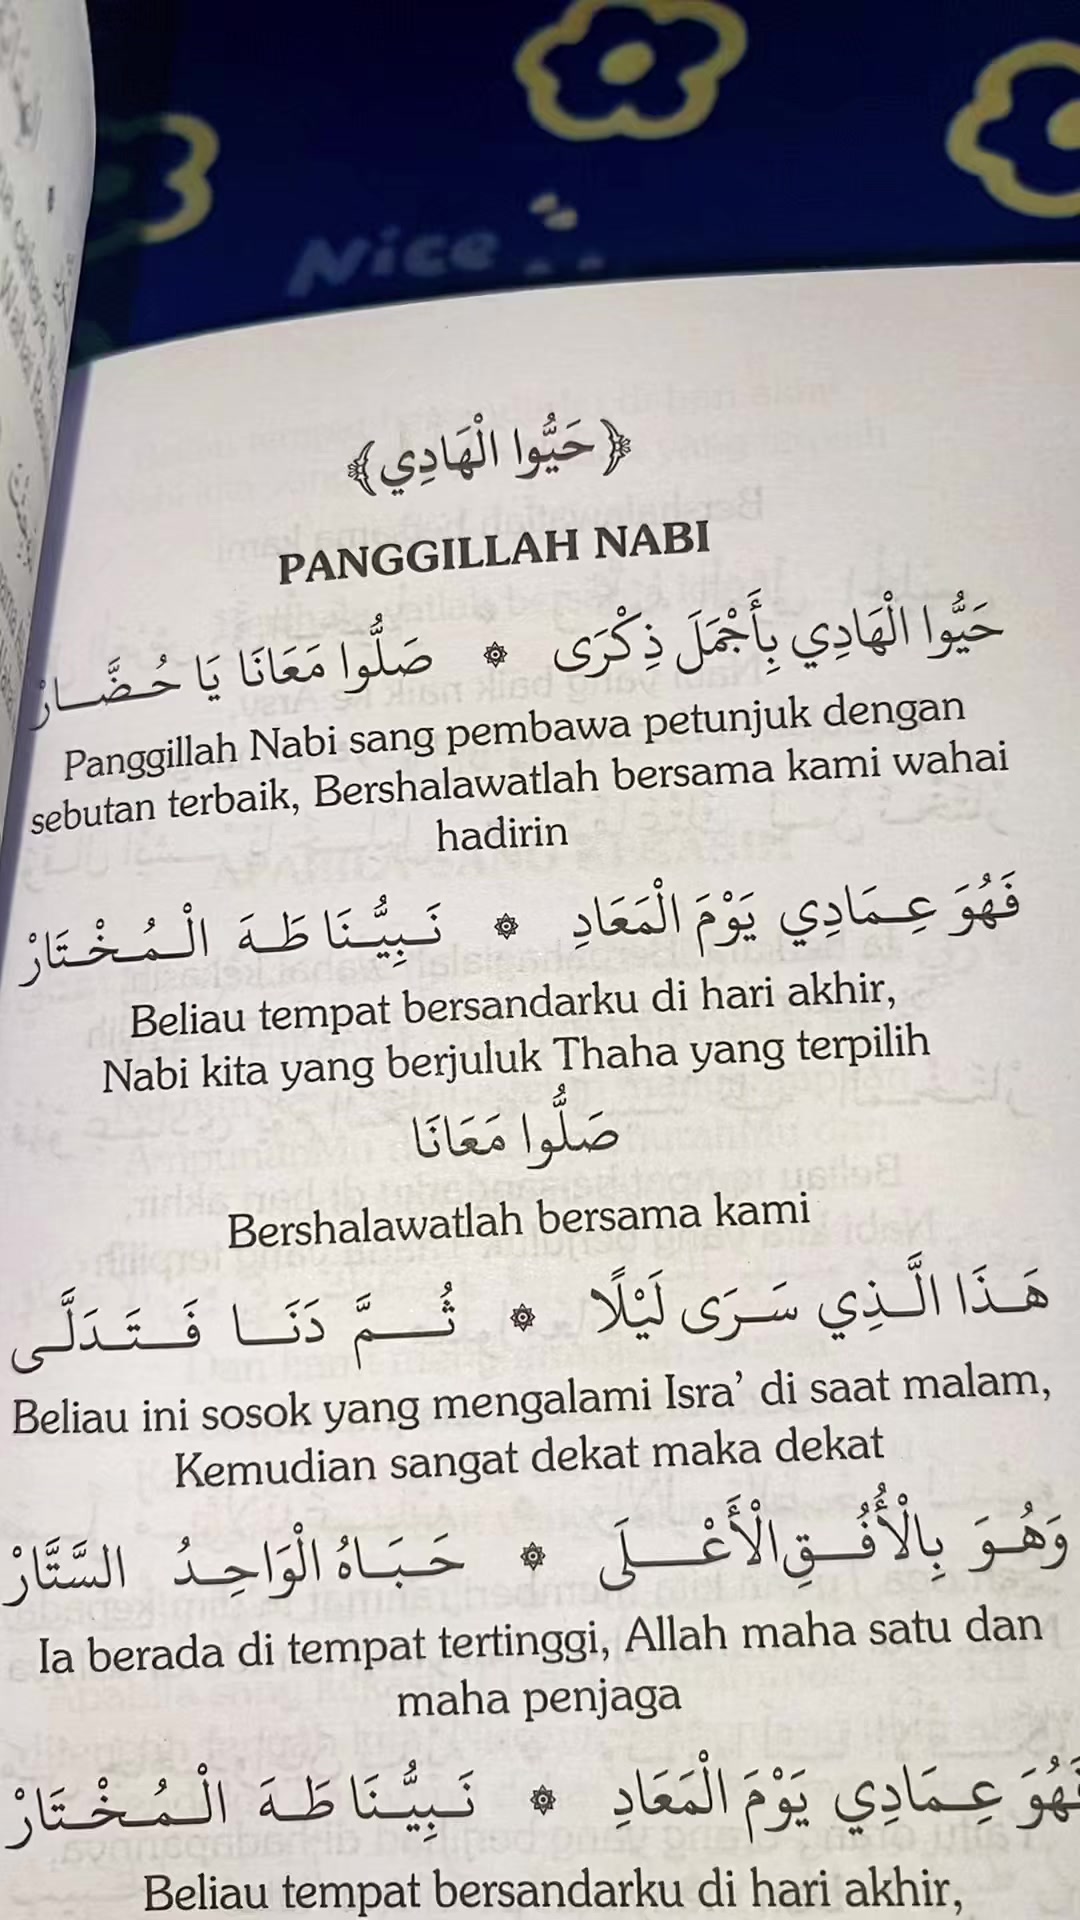 Nice
﴿حَيُّوا الْهَادِي﴾
PANGGILLAH NABI
حَيُّوا الْهَادِي بِأَجْمَلَ ذِكْرَى ۞ صَلُّوا مَعَانَا يَا حُضَّارْ
Panggillah Nabi sang pembawa petunjuk dengan
sebutan terbaik, Bershalawatlah bersama kami wahai
hadirin
فَهُوَ عِمَادِي يَوْمَ الْمَعَادِ ۞ نَبِيُّنَا طَهَ الْمُخْتَارْ
Beliau tempat bersandarku di hari akhir,
Nabi kita yang berjuluk Thaha yang terpilih
صَلُّوا مَعَانَا
Bershalawatlah bersama kami
هَذَا الَّذِي سَرَى لَيْلًا ۞ ثُمَّ دَنَا فَتَدَلَّى
Beliau ini sosok yang mengalami Isra’ di saat malam,
Kemudian sangat dekat maka dekat
وَهُوَ بِالْأُفُقِ الْأَعْلَى ۞ حَبَاهُ الْوَاحِدُ السَّتَّارْ
Ia berada di tempat tertinggi, Allah maha satu dan
maha penjaga
فَهُوَ عِمَادِي يَوْمَ الْمَعَادِ ۞ نَبِيُّنَا طَهَ الْمُخْتَارْ
Beliau tempat bersandarku di hari akhir,